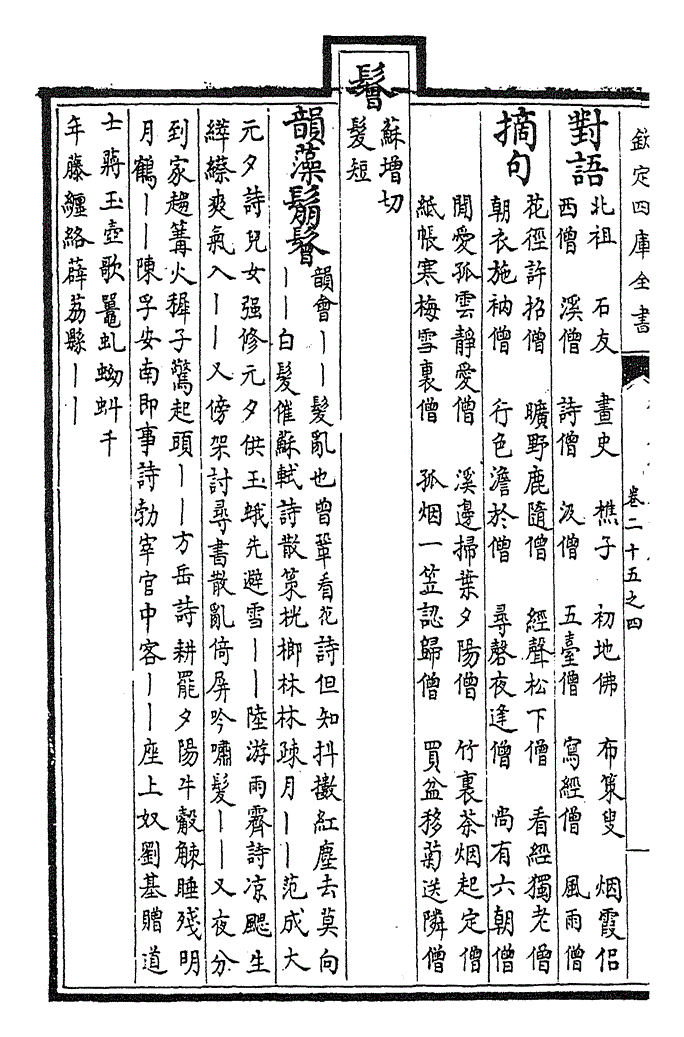 欽定四庫全書
卷二十五之四
對語
北祖　石友　畫史　樵子　初地佛　布策叟　烟霞侣
西僧　溪僧　詩僧　汲僧　五臺僧　寫經僧　風雨僧
摘句
花徑許招僧　曠野鹿隨僧　經聲松下僧　看經獨老僧
朝衣施衲僧　行色澹於僧　尋磬夜逢僧　尚有六朝僧
閒愛孤雲靜愛僧　溪邊掃葉夕陽僧　竹裏茶烟起定僧
紙帳寒梅雪裏僧　孤烟一笠認歸僧　買盆移菊送隣僧
鬙
蘇增切
髮短
韻藻鬅鬙
韻會丨丨髮亂也曾鞏看花詩但知抖擻紅塵去莫向
丨丨白髮催蘇軾詩散策桄榔林林疎月丨丨范成大
元夕詩兒女强修元夕供玉蛾先避雪丨丨陸游雨霽詩凉颸生
繂縩爽氣入丨丨又傍架討尋書散亂倚屏吟嘯髮丨丨又夜分
到家趨篝火穉子驚起頭丨丨方岳詩耕罷夕陽牛觳觫睡殘明
月鶴丨丨陳孚安南即事詩勃窣官中客丨丨座上奴劉基贈道
士蔣玉壺歌鼉虬蚴蚪千
年藤纏絡薜荔縣丨丨